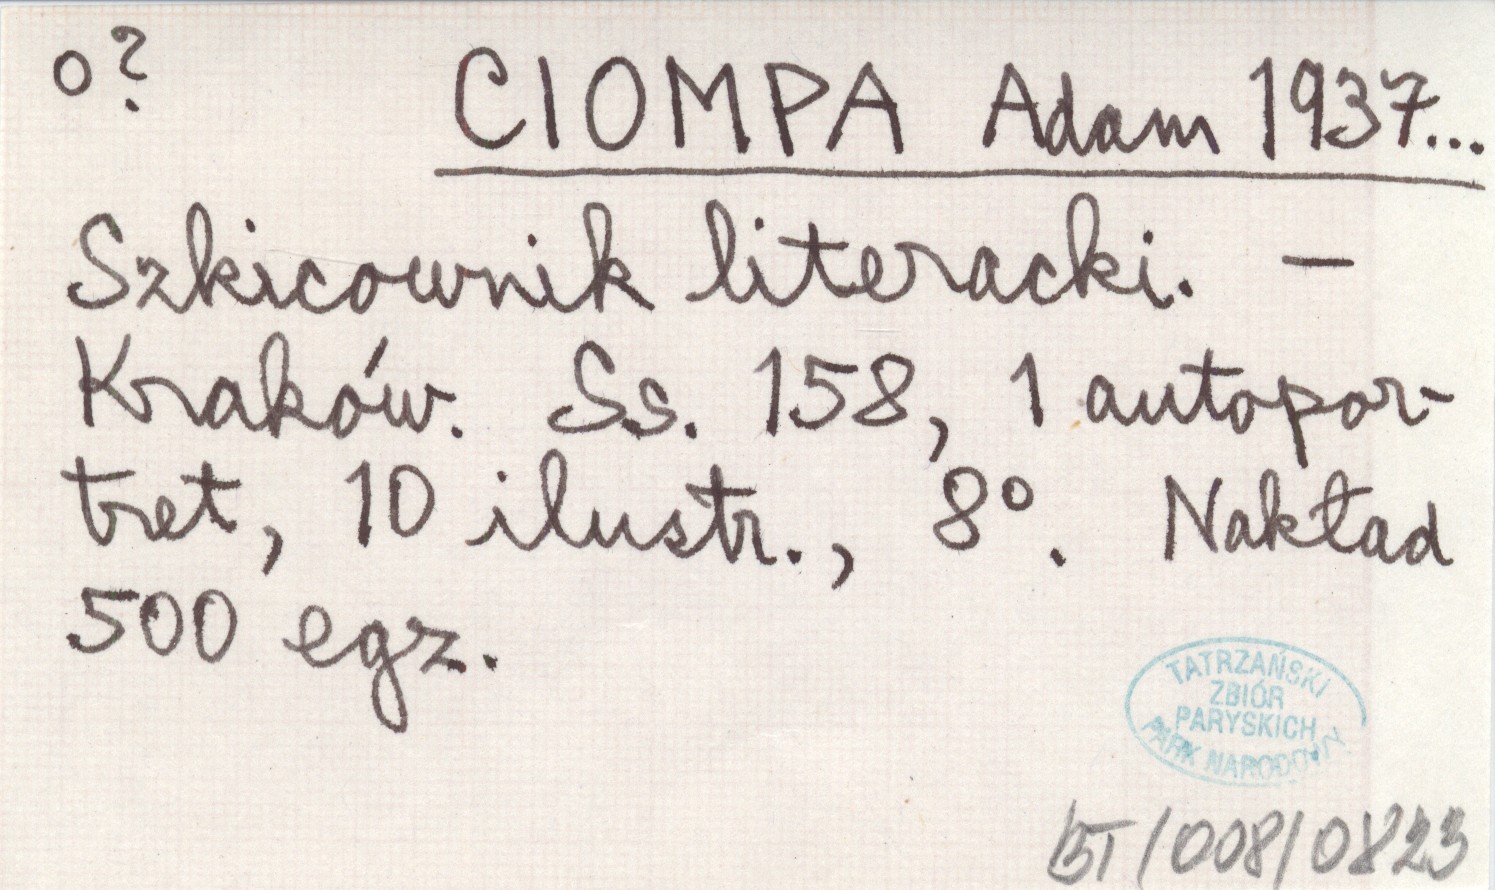 o?
CIOMPA Adam 1937...
Szkicownik literacki. —
Kraków. Ss. 158, 1 autopor-
tret, 10 ilustr., 8°. Nakład
500 egz.
TATRZAŃSKI
ZBIÓR
PARYSKICH
PARK NARODOWY
BT/008/0823